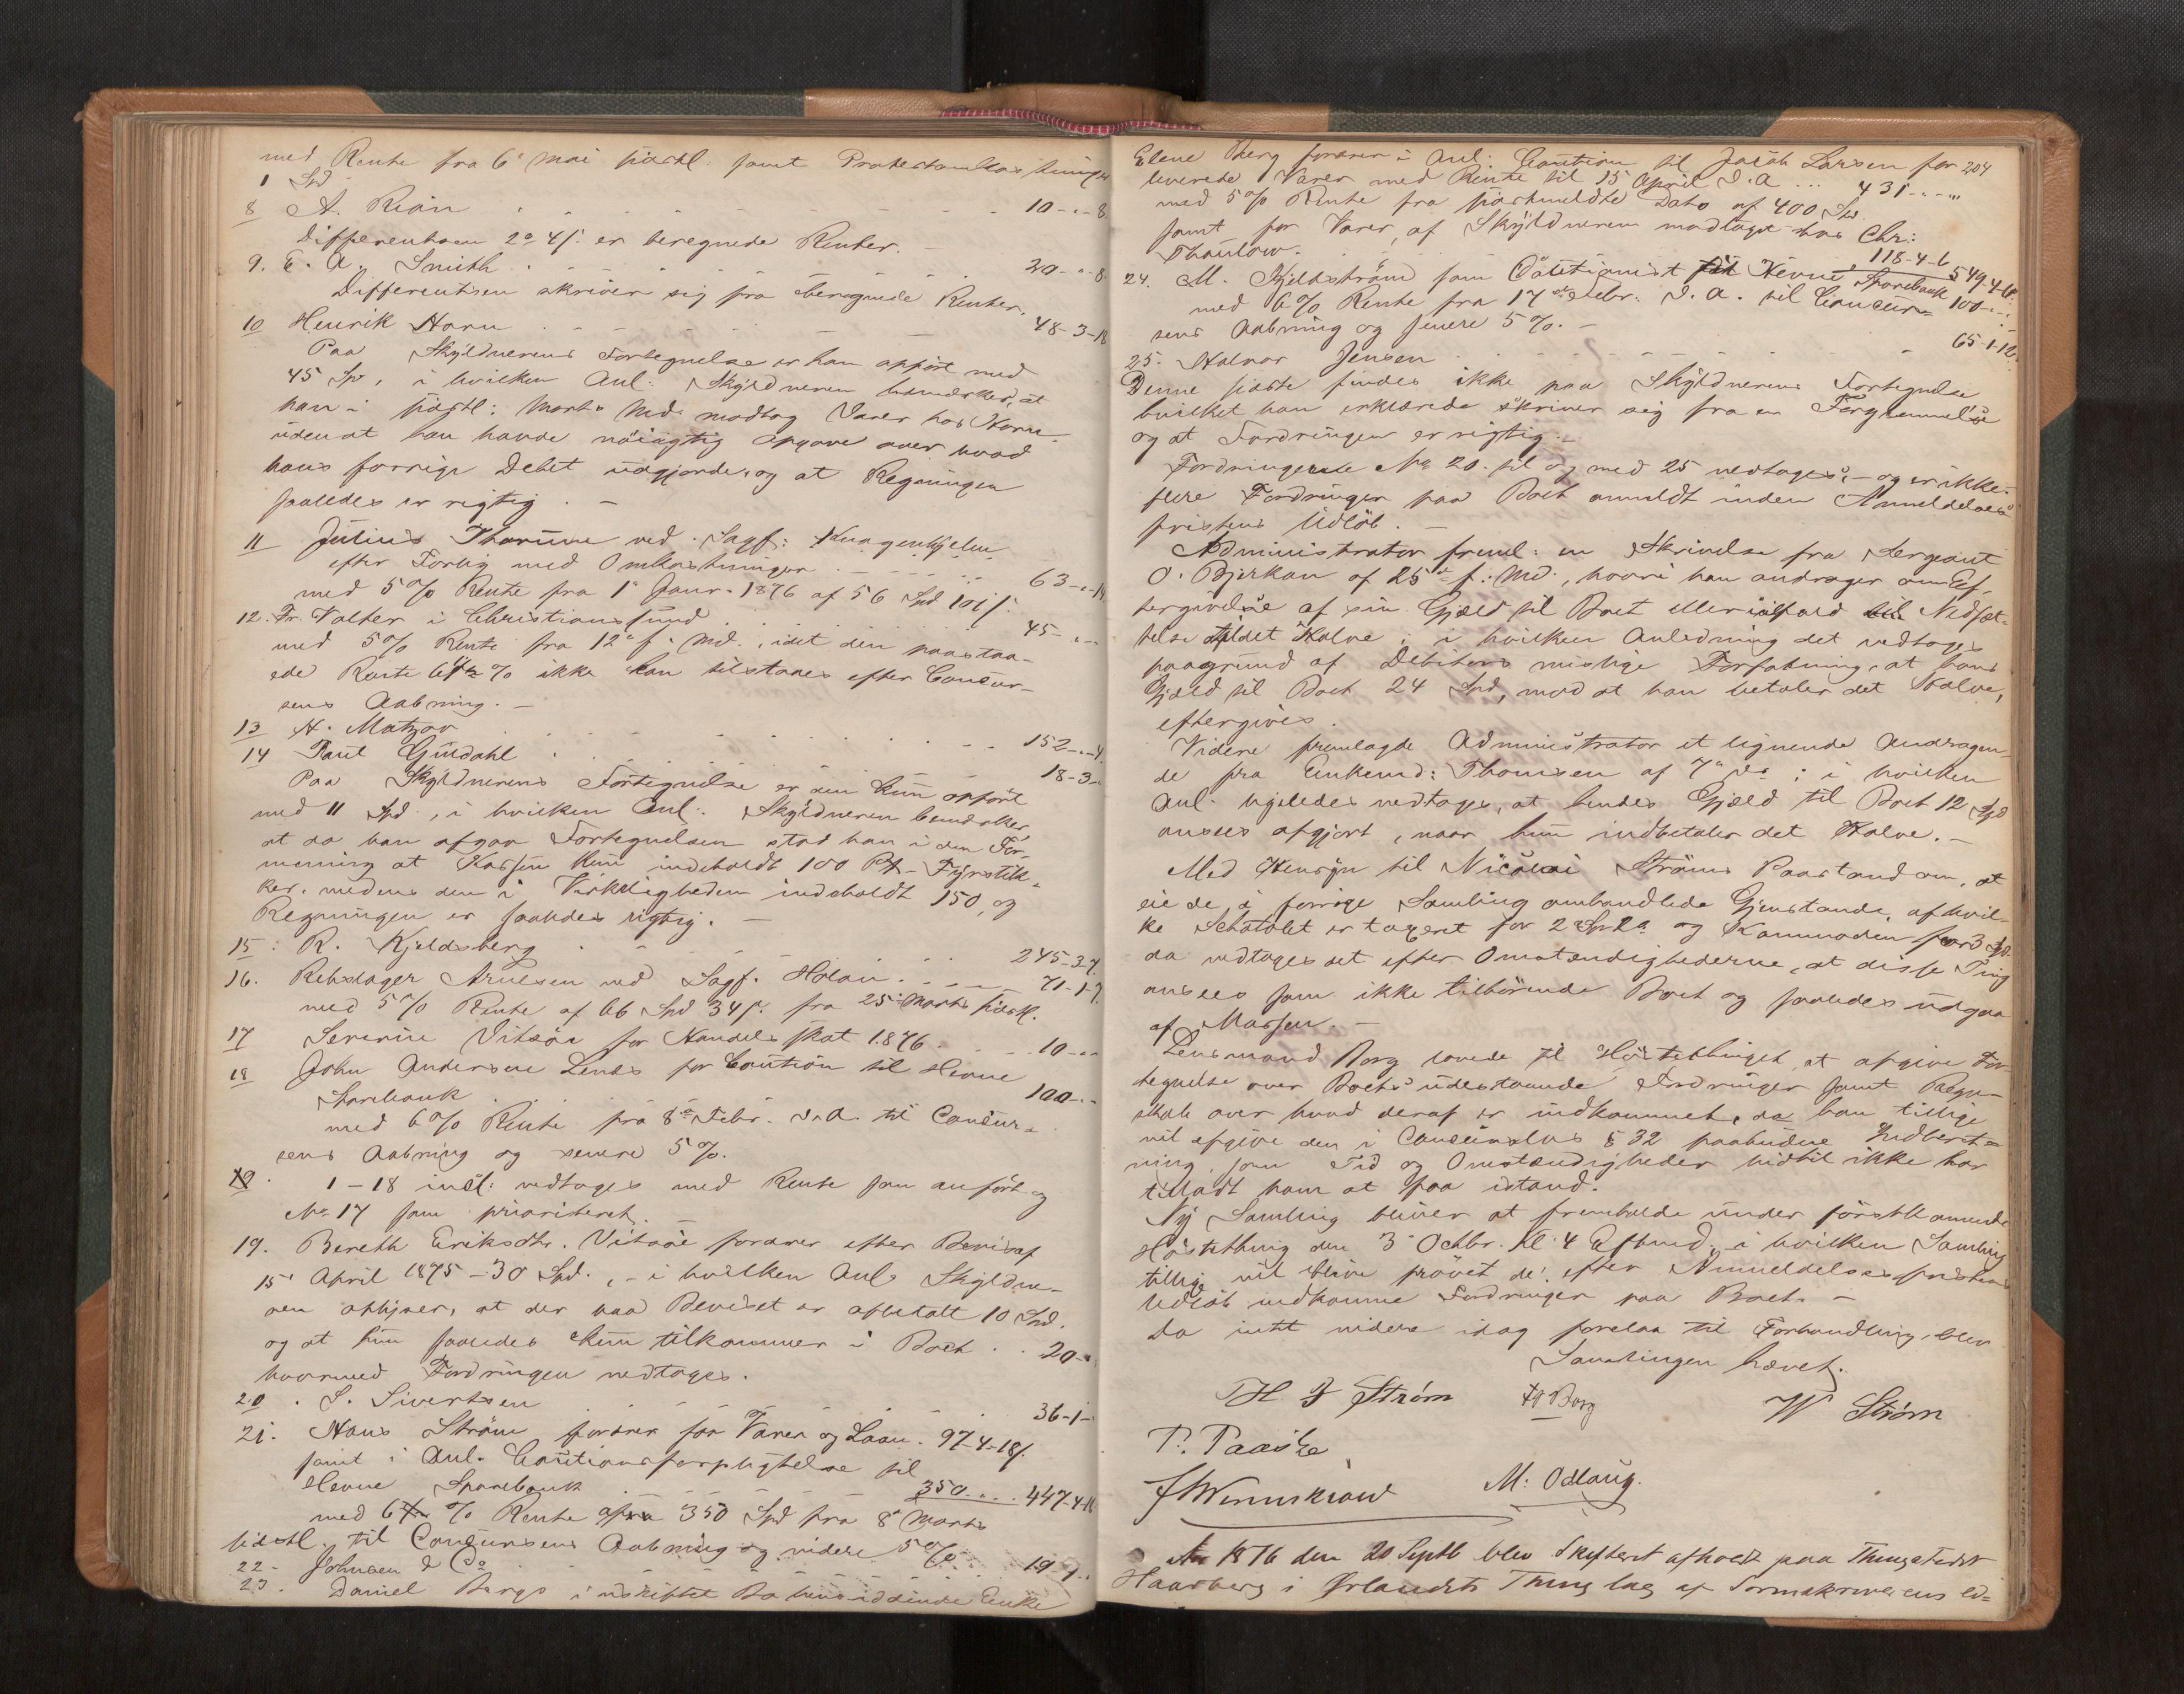 med Rente fra 6' Mai sidstl. samt Protestomkostninger
1 Spd
8 A. Rian . . . 10-"-8
Differentsen 2 ort 4 s. er beregnede Renter. -
9. E. A. Smith . . . 20-"-8
Differentsen skriver sig fra beregnede Renter.
10 Henrik Horn . . . 48-3-18
Paa Skyldnerens Fortegnelse er han opført med
45 Spd, i hvilken Anl: Skyldneren bemærked, at
han i sidstl: Marts Md. modtog Varer hos Horn
uden at han havde nöiagtig Opgave over hvad
hans forrige Debet udgjorde, og at Regningen
saaledes er rigtig. -
11 Julius Thorun ved Sagf: Knagenhjelm
efter Forlig med Omkostninger . . . 63-"-
med 5 % Rente fra 1' Janr. 1876 af 56 Spd 101 s.
12. Fr. Volter i Christianssund . . . 45-"-"
med 5 % Rente fra 12' f. Md., idet den paastaa-
ede Rente 6 % ikke kan tilstaaes efter Concur-
sens Aabning. -
13 H. Matzow . . . 152-"-4.
14 Paul Guldahl . . . 18-3-"
Paa Skyldnerens Fortegnelse er den kun opfört
med 11 Spd., i hvilken Anl: Skyldneren bemærker
at da han afgav Fortegnelsen stod han i den For-
mening at Kassen kun indeholdt 100 Pk. Fyrstik-
ker, medens den i Virkeligheden indeholdt 150, og
Regningen er saaledes rigtig. -
15: R. Kjeldsberg . . . 245-3-7.
16. Rebslager Arnesen ved Sagf. Holan . . . 71-1-9.
med 5 % Rente af 66 Spd 34 s. fra 25' Marts sidstl.
17 Severine Vitsöe for Handelsskat 1876 . . . 10-"-"
18 John Andersen Lenes for Caution til Hevne
Sparebank . . . 100-"-
med 6 % Rente fra 8' Febr. d. A. til Concur-
sens Aabning og senere 5 %.
19. 1-18 incl: vedtages med Rente som anført og
No 17 som prioriteret. -
19. Bereth Eriksdtr. Vitsöe fordrer efter Bevis af
15' April 1875 - 30 Spd., - i hvilken Anl. Skyldne-
ren oplyser, at der paa Beviset er afbetalt 10 Spd.
og at hun saaledes kun tilkommer i Boet . . 20-"
hvormed Fordringen vedtages.
20. S. Sivertsen . . . 36-1-
21. Hans Ström fordrer for Varer og Laan. 97-4-18 s.
samt i Anl. Cautionsforpligtelse til
Hevne Sparebank 350 . . . . 447-4-18
med 6 % Rente af 350 Spd fra 8' Marts
sidstl. til Concursens Aabning og videre 5 %
22 - Johnsen & Co . . . 19-
23. Daniel Bergs i uskiftet Bo hensiddende Enke
Elene Berg fordrer i Anl: Caution til Jacob Larsen for 204
leverede Varer med Rente til 15 April d. A . . . 431-"-"
med 5 % Rente fra sidstmeldte Dato af 400 Spd.
samt for Varer, af Skyldneren modtaget hos Chr:
Thaulow. . . . 118-4-6 549-4-6
24. M. Kjeldström som Cautionist til Hevne Sparebank 100-"-"
med 6 % Rente fra 17de Febr. d. A. til Concur-
sens Aabning og senere 5 %. -
25. Halvor Jensen . . . 65-1-12.
Denne sidste findes ikke paa Skyldnerens Fortegnelse
hvilket han erklærede skriver sig fra en Forglemmelse
og at Fordringen er rigtig. -
Fordringerne No 20. til og med 25 vedtages, - og er ikke
flere Fordringer paa Boet anmeldt inden Anmeldelses-
fristens Udlöb. -
Administrator freml: en Skrivelse fra Sergeant
O. Bjerkan af 25de f: Md., hvori han andrager om Ef-
tergivelse af sin Gjæld til Boet eller ialfald Nedsæt-
telse til det Halve; i hvilken Anledning det vedtoges
paagrund af Debitors mislige Forfatning, at hans
Gjæld til Boet 24 Spd, mod at han betaler det Halve,
eftergives.
Videre fremlagde Administrator et lignende Andragen-
de fra Enkemd: Thomsen af 7' ds.; i hvilken
Anl. ligeledes vedtoges, at hendes Gjæld til Boet 12 Spd
ansees afgjort, naar hun indbetaler det Halve. -
Med Hensyn til Nicolai Ströms Paastand om, at
eie de, i forrige Samling omhandlede Gjenstande, af hvil-
ke Schatolet er taxeret for 2 Spd 2 ort og Kommoden for 3 Spd.
da vedtoges det efter Omstændighederne, at disse Ting
ansees som ikke tilhörende Boet og saaledes udgaa
af Massen. -
Lensmand Borg lovede til Hösttthinget at afgive For-
tegnelse over Boets udestaaende Fordringer samt Regn-
skab over hvad deraf er indkommet, da han tillige
vil afgive den i Concurslov § 32 paabudne Indberet-
ning, som Tid og Omstændigheder hidtil ikke har
tilladt ham at faa istand.
Ny Samling bliver at fremholde under förstkommende
Hösttthing den 3' Octbr. Kl. 4 Eftmd., i hvilken Samling
tillige vil blive prövet de efter Anmeldelsesfristens
Udlöb indkomne Fordringer paa Boet. -
Da intet videre idag forelaa til Forhandling, blev
Samlingen hævet.
H J Ström Borg W Ström
P. Paaske
M. Odlaug.
Ar 1876 den 20 Septb blev Skifteret afholdt paa Thingstedet
Haarberg i Ørlandets Thinglag af Sorenskriverens ed=